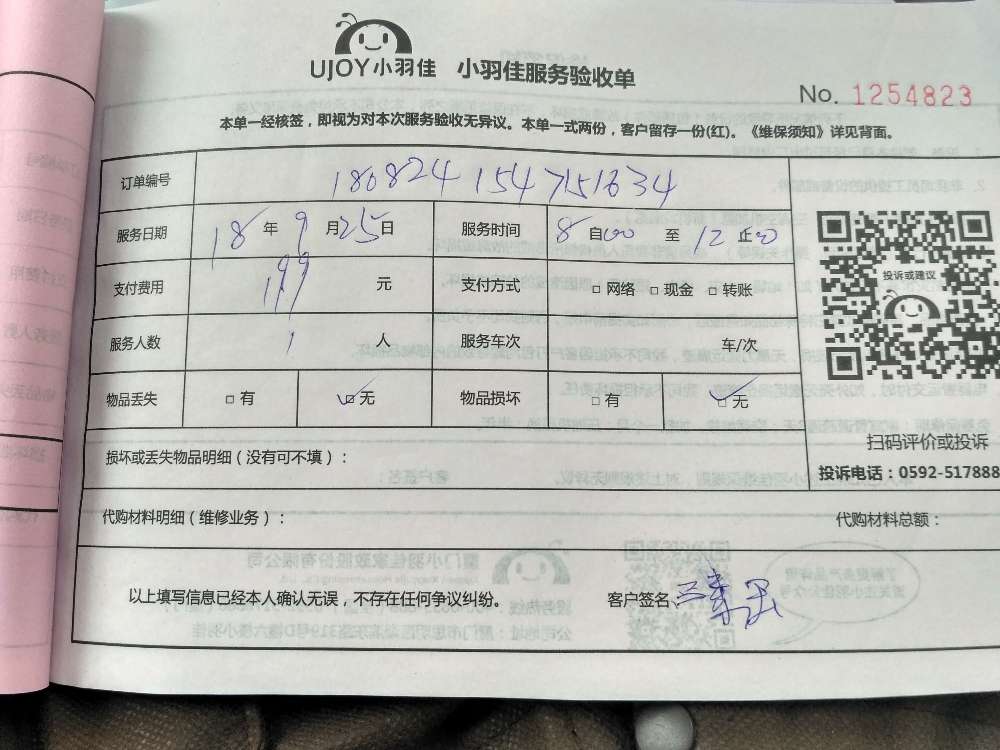 UJOY小羽佳 小羽佳服务验收单
No. 1254823
本单一经核签，即视为对本次服务验收无异议。本单一式两份，客户留存一份(红)。《维保须知》详见背面。
订单编号 180824154751634
服务日期 18年9月25日 服务时间 8自00至12止00
支付费用 199元 支付方式 □网络 □现金 □转账
投诉或建议
服务人数 1人 服务车次 车/次
物品丢失 □有 ☑无 物品损坏 □有 ☑无
扫码评价或投诉
损坏或丢失物品明细（没有可不填）：
投诉电话：0592-517888
代购材料明细（维修业务）： 代购材料总额：
以上填写信息已经本人确认无误，不存在任何争议纠纷。 客户签名：